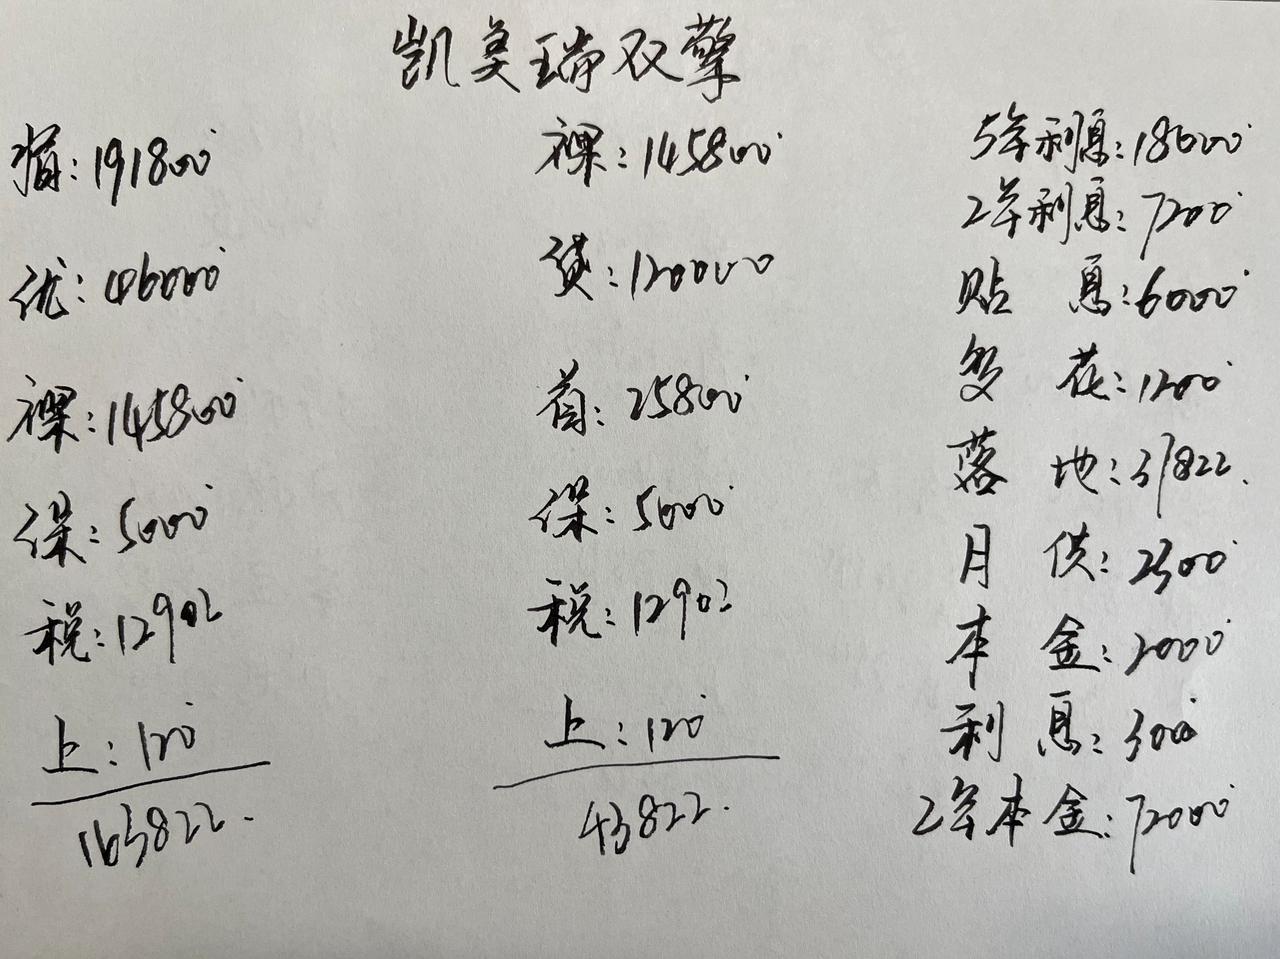 凯美瑞双擎
指:191800
优:46000
裸:145800
保:5000
税:12902
上:120
163822.
裸:145800
贷:120000
首:25800
保:5000
税:12902
上:120
43822.
5年利息:18000
2年利息:7200
贴 息:6000
多 花:1200
落 地:37822.
月 供:2300
本 金:2000
利 息:300
2年本金:72000